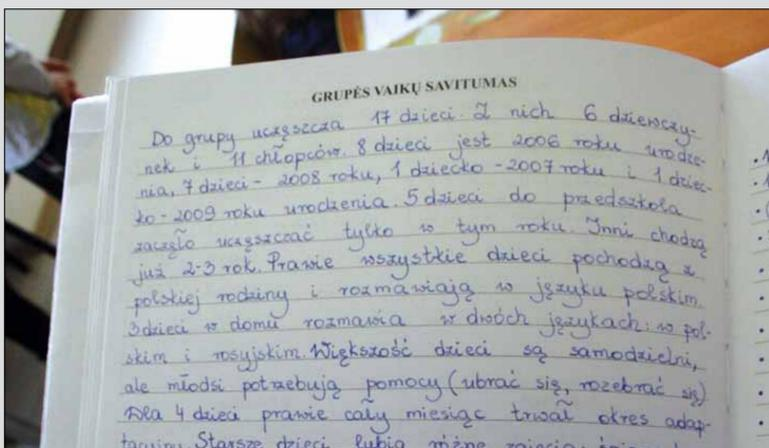 GRUPĖS VAIKŲ SAVITUMAS
Do grupy uczęszcza 17 dzieci. Z nich 6 dziewczy-
nek i 11 chłopców. 8 dzieci jest 2006 roku urodze-
nia, 7 dzieci - 2008 roku, 1 dziecko - 2007 roku i 1 dziec-
ko - 2009 roku urodzenia. 5 dzieci do przedszkola
zaczęło uczęszczać tylko w tym roku. Inni chodzą
już 2-3 rok. Prawie wszystkie dzieci pochodzą z
polskiej rodziny i rozmawiają w języku polskim.
3 dzieci w domu rozmawia w dwóch językach: w pol-
skim i rosyjskim. Większość dzieci są samodzielni,
ale młodsi potrzebują pomocy (ubrać się, rozebrać się)
Dla 4 dzieci prawie cały miesiąc trwał okres adap-
tacyjny. Starsze dzieci lubią różne zajęcia: